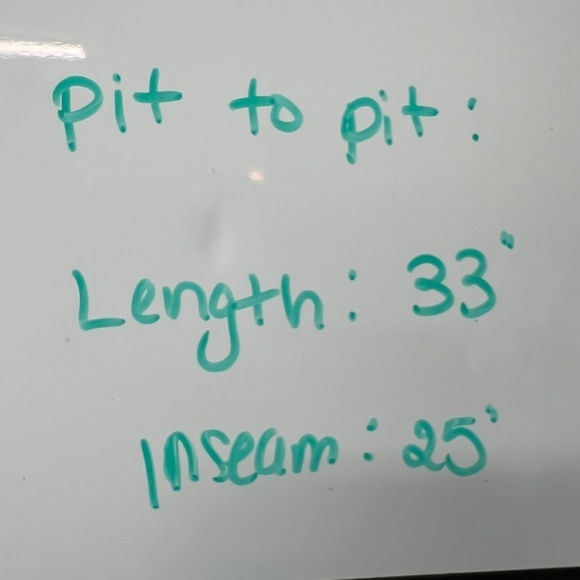 Pit to pit:
Length: 33"
Inseam: 25'